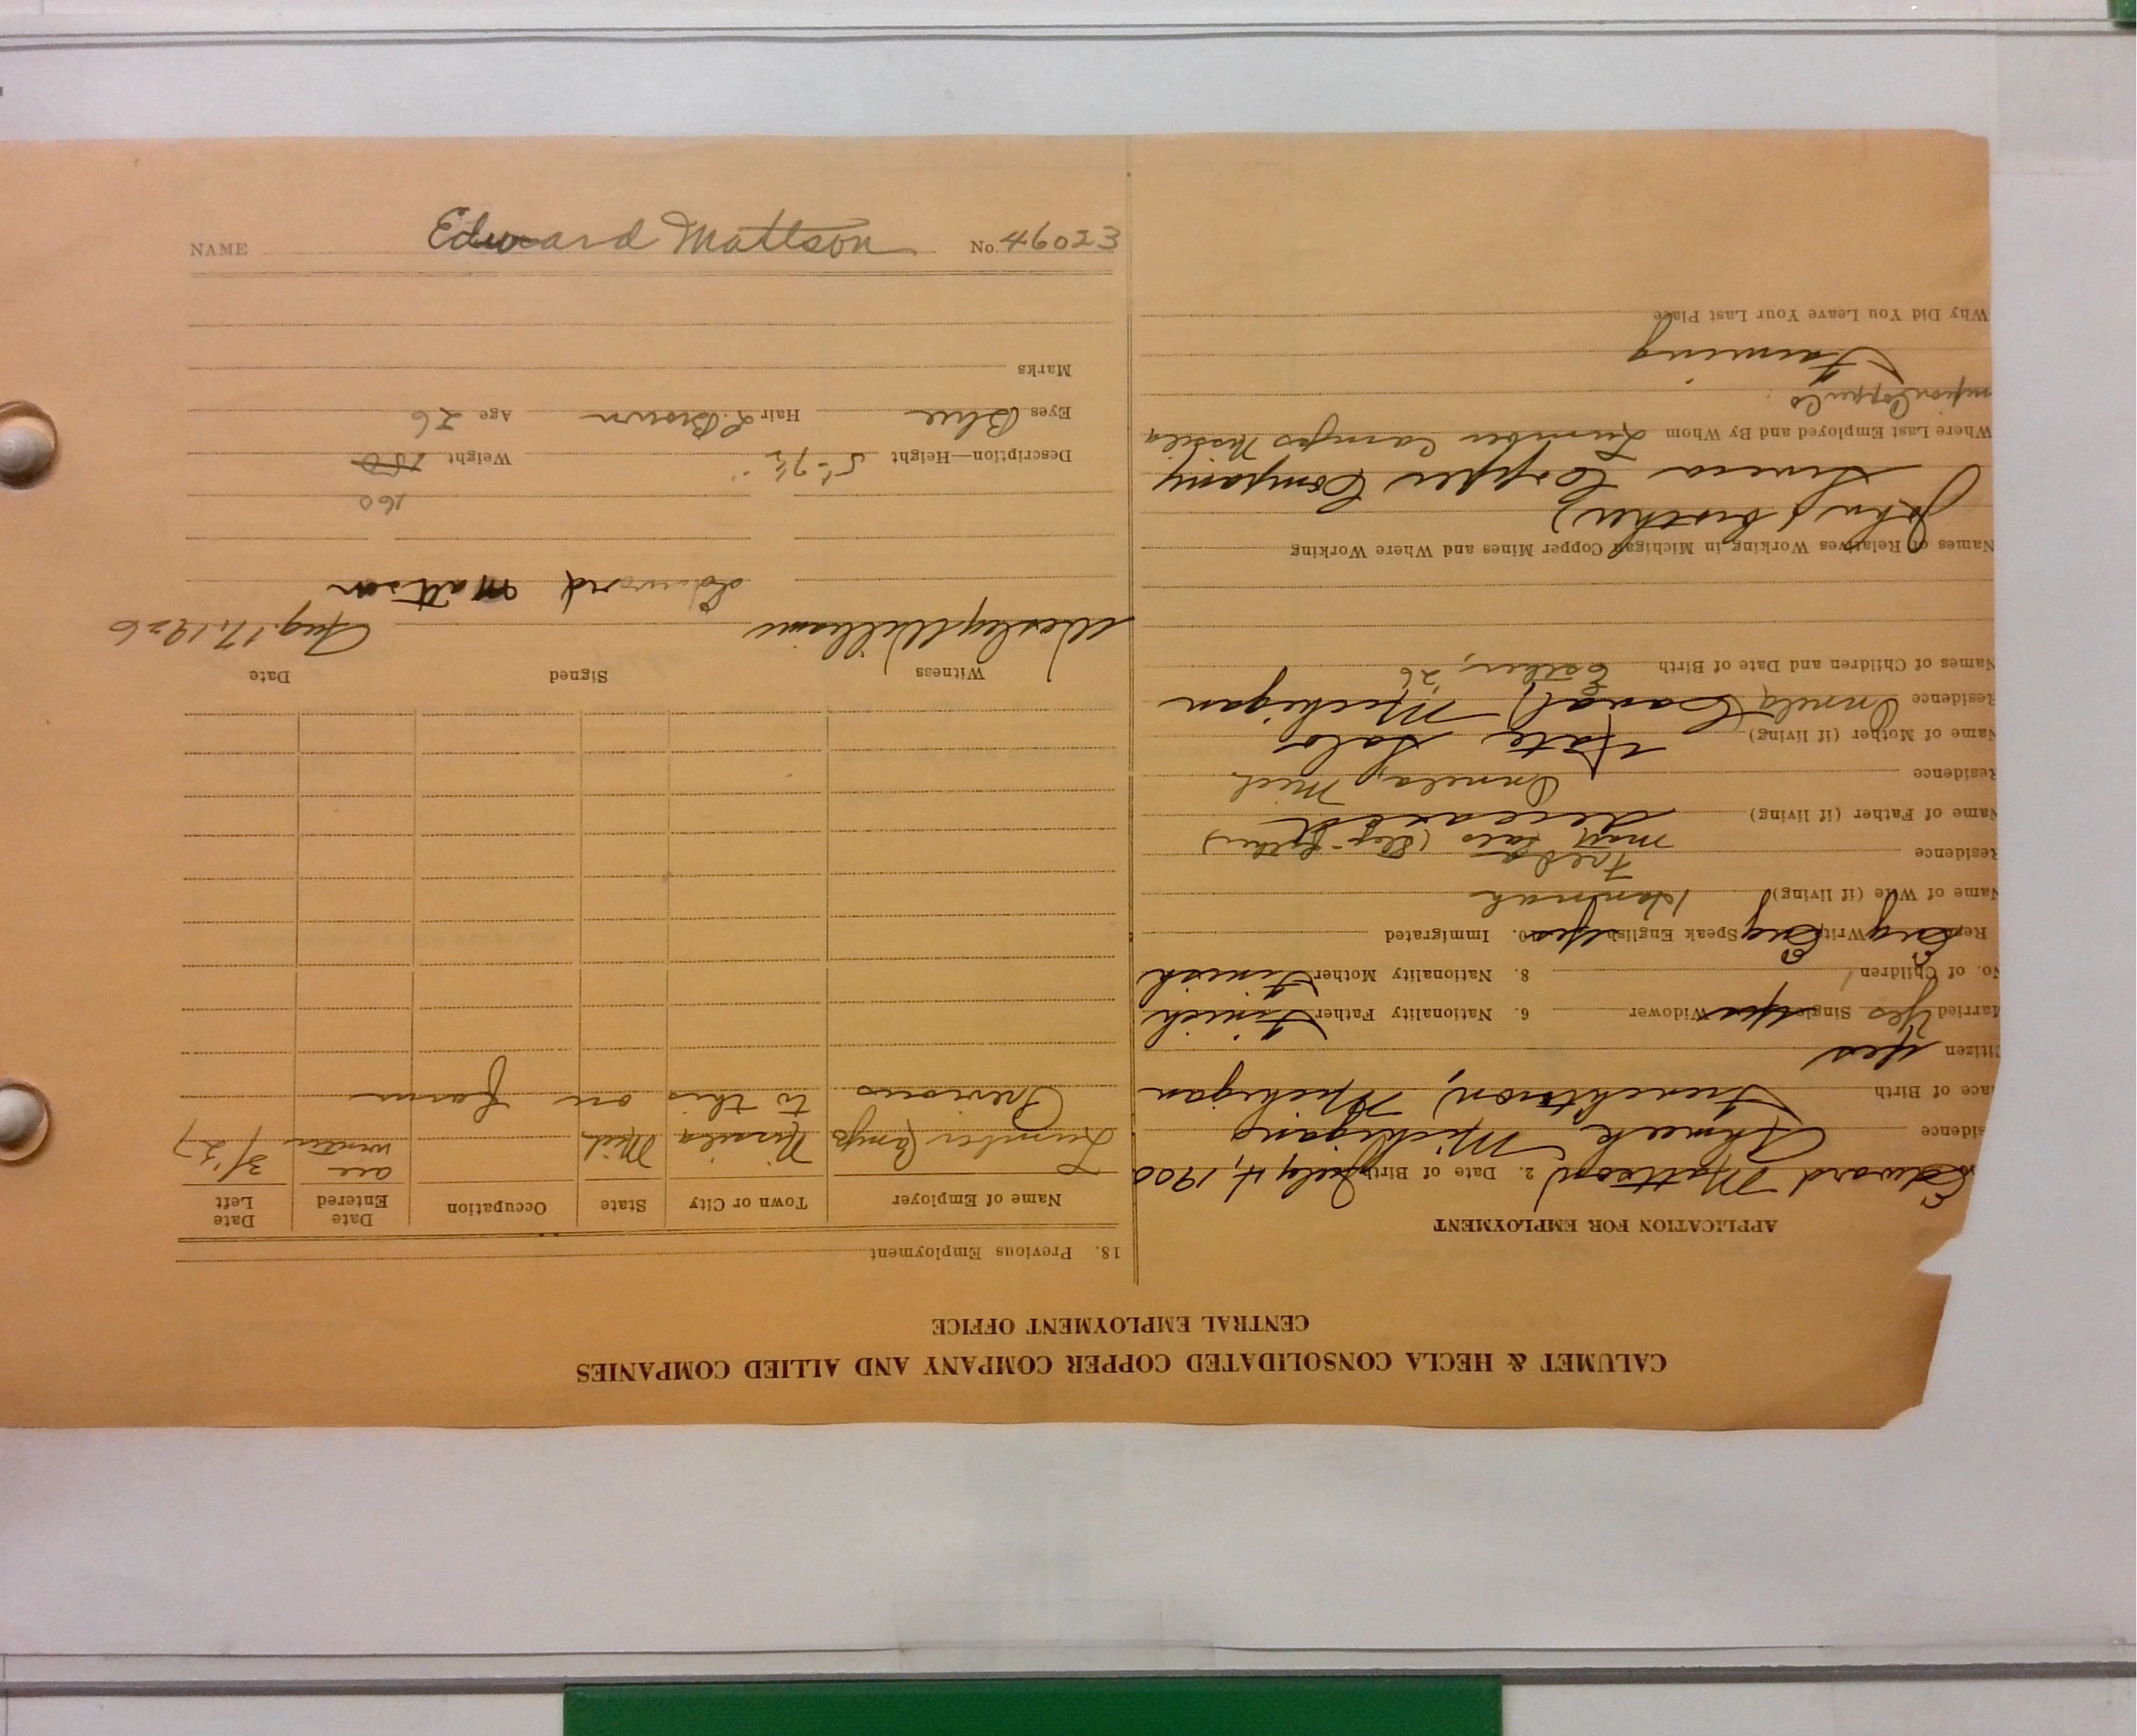 CALUMET & HECLA CONSOLIDATED COPPER COMPANY AND ALLIED COMPANIES
CENTRAL EMPLOYMENT OFFICE
APPLICATION FOR EMPLOYMENT
Edward Mattson 2. Date of Birth July 4, 1900
sidence Ahmeek, Michigan
ace of Birth Frenchtown, Michigan
itizen Yes
Married Yes Single Yes Widower 6. Nationality Father Finish
No. of Children 1 8. Nationality Mother Finish
Read Eng Write Eng Speak English Yes 10. Immigrated
Name of Wife (if living) Hannah
Residence Freda
Matt Salo (Step-father)
Name of Father (if living) deceased
Residence Onnela, Mich
Name of Mother (if living) Kate Salo
Residence Onnela, Canal, Michigan
Names of Children and Date of Birth Esther, '26
Names of Relatives Working in Michigan Copper Mines and Where Working
John (brother)
Seneca Copper Company
Where Last Employed and By Whom Lumber Camps Nisila
mpion Copper Co
Farming
Why Did You Leave Your Last Place
18. Previous Employment
Name of Employer Town or City State Occupation Date Entered Date Left
Lumber Camps Nisula Mich all winter 3/'27
Previous to this on farm
Witness Signed Date
Wesley Williams Aug. 17, 1926
Edward Mattson
160
Description—Height 5'-7½" Weight 150
Eyes Blue Hair L. Brown Age 26
Marks
NAME Edward Mattson No. 46023